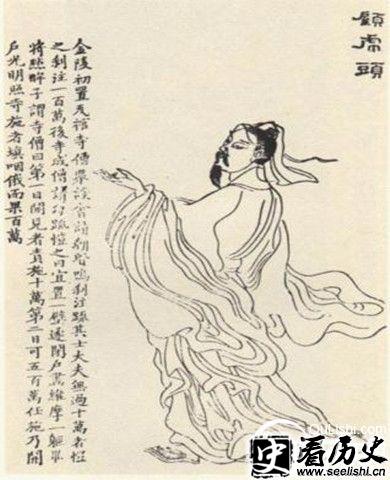 顧虎頭
金陵初置瓦棺寺僧衆設會請朝賢鳴刹注疏其士大夫無過十萬者愷
之刹注一百萬後寺成僧請勾疏愷之曰宜置一壁遂閉戶畫維摩一軀畢
將點眸子謂寺僧曰第一日開見者責施十萬第二日可五百萬任施乃開
戶光明照寺施者填咽俄而果百萬
QuLiShi.com
史 看历史
www.seelishi.cn